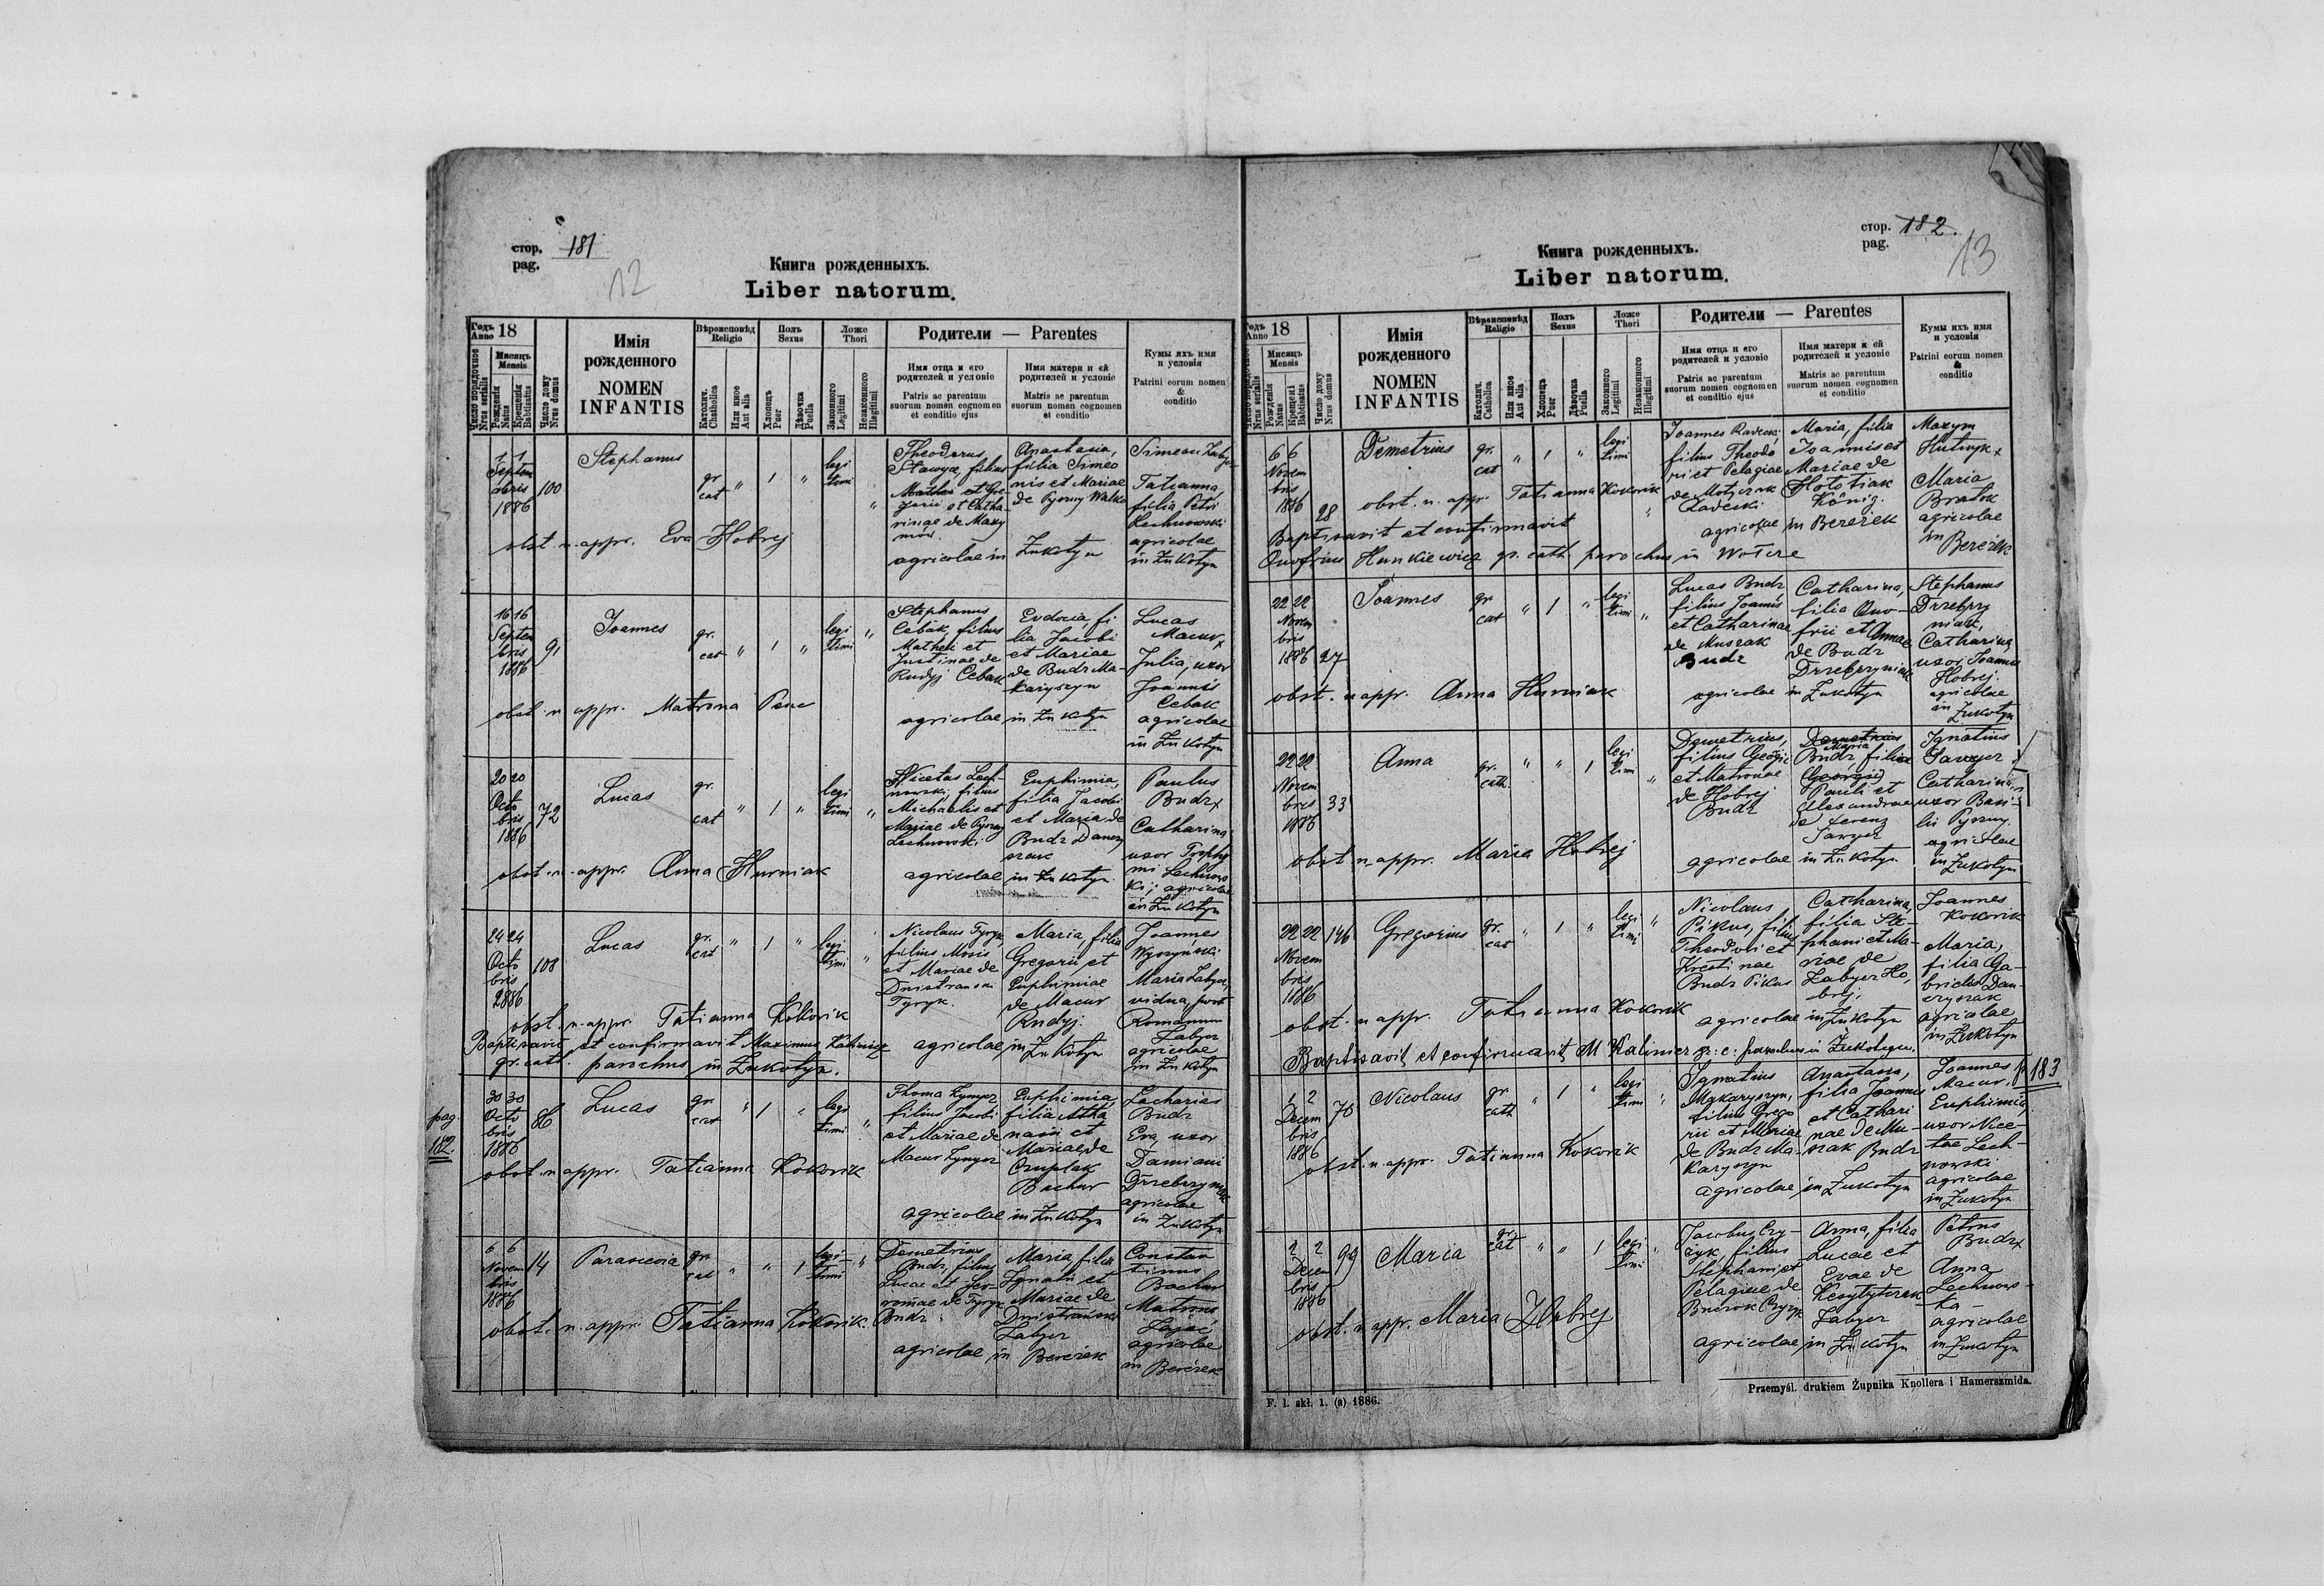 стор. 181
pag.
12
Книга рожденныхъ.
Liber natorum.
Годъ Anno 18
Число порядочное Nrus serialis
Мѣсяцъ Mensis
Рожденія Natus
Крещенія Babtisatus
Число дому Nrus domus
Имія рожденного
NOMEN INFANTIS
Вѣроисповѣд Religio
Католич. Chatholica
Или иное Aut alia
Полъ Sexus
Хлопецъ Puer
Дѣвочка Puella
Ложе Thori
Законного Legitimi
Незаконного Illegitimi
Родители — Parentes
Имя отца и его родителей и условіе
Patris ac parentum suorum nomen cognomen et conditio ejus
Имя матери и ей родителей и условіе
Matris ac parentum suorum nomen cognomen et conditio
Кумы ихъ имя и условія
Patrini eorum nomen & conditio
1 1 Septembris 1886
100
Stephanus
gr. cat
" 1 "
legitimi
"
Theodorus
filius
et Gregorii et Catharinae de
Anastasia,
filia Simeonis et Mariae
de Pyszny Walko
Simeon Zabyer
Tatianna,
filia Petri
Lechnowski
agricolae
in Żukotyn
agricolae in Żukotyn
obst. n. appr. Eva Hobrej
16 16 Septembris 1886
91
Joannes
gr. cat
" 1 "
legitimi
"
Stephanus
Cebak, filius
Mathei et
Justinae de
Rudyj Cebak
Evdocia, filia Jacobi
et Mariae
de Budz Makaryszyn
Lucas
Macur x
Julia, uxor
Joannis
Cebak
agricolae
in Żukotyn
agricolae in Żukotyn
obst. n appr. Matrona Penc
20 20 Octobris 1886
72
Lucas
gr. cat
" 1 "
legitimi
"
Nicetas Lechnowski, filius
Michaelis et
Mariae de Pyszny
Lechnowski
Euphimia,
filia Jacobi
et Maria de
Budz Danczyszak
Paulus
Budz x
Catharina
uxor Trophimi Lechnowski; agricolae
in Żukotyn
agricolae in Żukotyn
obst. n. appr. Anna Hurniak
24 24 Octobris 1886
108
Lucas
gr. cat
" 1 "
legitimi
"
Nicolaus Tyryk,
filius
et Mariae de
Dnistranski
Tyryk.
Maria, filia
Gregorii et
Euphimiae
de Macur
Rudyj.
Joannes
Wyszyński
Maria Zabyer,
vidua, post
Romanum
Zabyer
agricolae
in Żukotyn
obst. n. appr. Tatianna Kokorik
Baptisavit et confirmavit Maximus Kaliniez
gr. cath. parochus in Żukotyn.
agricolae in Żukotyn
pag.
182.
30 30 Octobris 1886
86
Lucas
gr. cat
" 1 "
legitimi
"
Thoma Zynycz
filius Jacobi
et Mariae de
Macur Zynycz
Euphimia,
filia Athanasii et
Mariae de
Czuplak
Bachur
Zacharias
Budz
Eva, uxor
Damiani
Drzebzyniak
agricolae
in Żukotyn
obst. n appr. Tatianna Kokorik
agricolae in Żukotyn
6 6 Novembris 1886
14
Parascevia
gr. cat
" " 1
legitimi
"
Demetrius
Budz, filius
Lucae et
de Tyryk
Budz
Maria, filia
Ignatii et
Mariae de
Dnistranska
Zabyer
Constantinus
Bachur
Matrona
agricolae
in Berezek
obst. n. appr. Tatianna Kokorik.
agricolae in Berezek
стор. 182.
pag.
13
Книга рожденныхъ.
Liber natorum.
Годъ Anno 18
Число порядочное Nrus serialis
Мѣсяцъ Mensis
Рожденія Natus
Крещені Babtisatus
Число дому Nrus domus
Имія рожденного
NOMEN INFANTIS
Вѣроисповѣд Religio
Католич. Catholica
Или иное Aut alia
Полъ Sexus
Хлопецъ Puer
Дѣвочка Puella
Ложе Thori
Законного Legitimi
Незаконного Illegitimi
Родители — Parentes
Имя отца и его родителей и условіе
Patris ac parentum suorum nomen cognomen et conditio ejus
Имя матери и ей родителей и условіе
Matris ac parentum suorum nomen cognomen et conditio
Кумы ихъ имя и условія
Patrini eorum nomen & conditio
6 6 Novembris 1886
28
Demetrius
gr. cat
" 1 "
legitimi
"
Joannes Radecki,
filius Theodori et Pelagiae
de
Radecki
Maria, filia
Joannis et
Mariae de
Hototiak
König.
Maxym
x
Maria
Bratok
agricolae
in Berezek
obst. n. appr. Tatianna Kokorik
agricolae in Berezek
Baptisavit et confirmavit
Onofrius Hunkiewicz gr. cath. parochus in Wołcze
22 22 Novembris 1886
27
Joannes
gr. cat
" 1 "
legitimi
"
Lucas Budz
filius Joannis
et Catharinae
de Muszak
Budz
Catharina,
filia Onofrii et Annae
de Budz
Drzebzyniak
Stephanus
Drzebzyniak,
Catharina
uxor Joannis
Hobrej.
agricolae
in Żukotyn
obst. n appr. Anna Hurniak
agricolae in Żukotyn
22 22 Novembris 1886
33
Anna
gr. cath.
" " 1
legitimi
"
Demetrius,
filius Georgii
et Matronae
de Hobrej
Budz
Demetrius
Maria
Budz, filia
(Georgii)
Pauli et
Alexandrae
de Ferenz
Sawyer
Ignatius
Sawyer x
Catharina,
uxor Basilii Pyszny.
agricolae
in Żukotyn
obst. n appr. Maria Hobrej
agricolae in Żukotyn
22 22 Novembris 1886
146
Gregorius
gr. cat
" 1 "
legitimi
"
Nicolaus
Pikus, filius
Theodori et
Krestinae
Budz Pikus
Catharina,
filia Stephani et Mariae de
Zabyer Hobrej.
Joannes
Kokorik
Maria,
filia Gabrielis Danczyszak
agricolae
in Żukotyn
obst. n appr. Tatianna Kokorik
agricolae in Żukotyn
Baptisavit et confirmavit M Kaliniez gr. c. parochus in Żukotyn.
1 2 Decembris 1886
76
Nicolaus
gr. cath
" 1 "
legitimi
"
Ignatius
Makaryszyn,
filius Gregorii et Mariae
de Budz Makaryszyn
Anastasia,
filia Joannis
et Catharinae de Muszak Budz
Joannes
Macur.
Euphimia,
uxor Nicetae Lechnowski
agricolae
in Żukotyn
p 183
obst. n. appr. Tatianna Kokorik
agricolae in Żukotyn
2 2 Decembris 1886
99
Maria
gr. cat
" " 1
legitimi
"
Jacobus Czyżyk, filius
Stephani et
Pelagiae de
Czyżyk
Anna, filia
Lucae et
Evae de
Zabyer
Petrus
Budz x
Anna
Lechnowska
agricolae
in Żukotyn
obst. n appr. Maria Hobrej
agricolae in Żukotyn
Przemyśl. drukiem Żupnika Knollera i Hamerszmida.
F. l. skł. 1. (a) 1886.